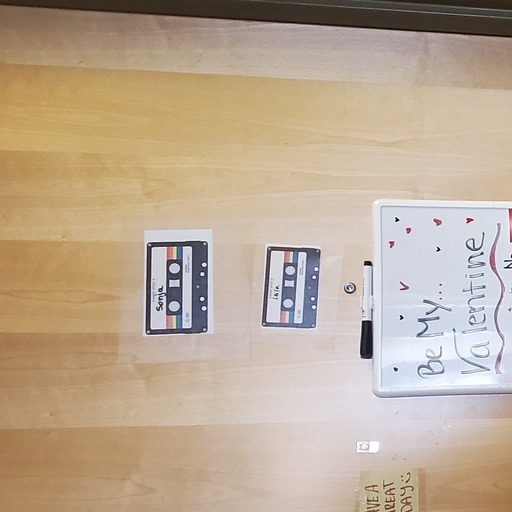 Sonja
C-90
Leila
C-90
HAVE A
GREAT
DAY
Be My...
Valentine
No